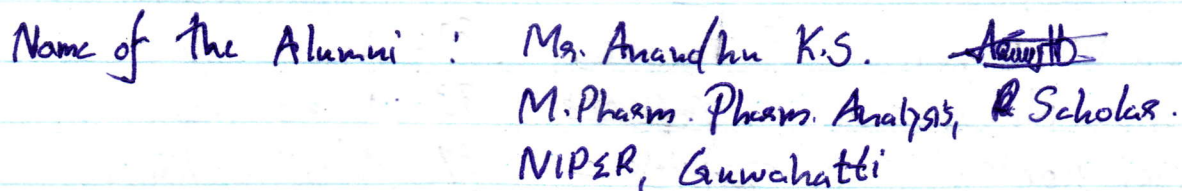 Name of the Alumni : Mr. Anandhu K.S.
M.Pharm. Pharm. Analysis, Scholar.
NIPER, Guwahatti